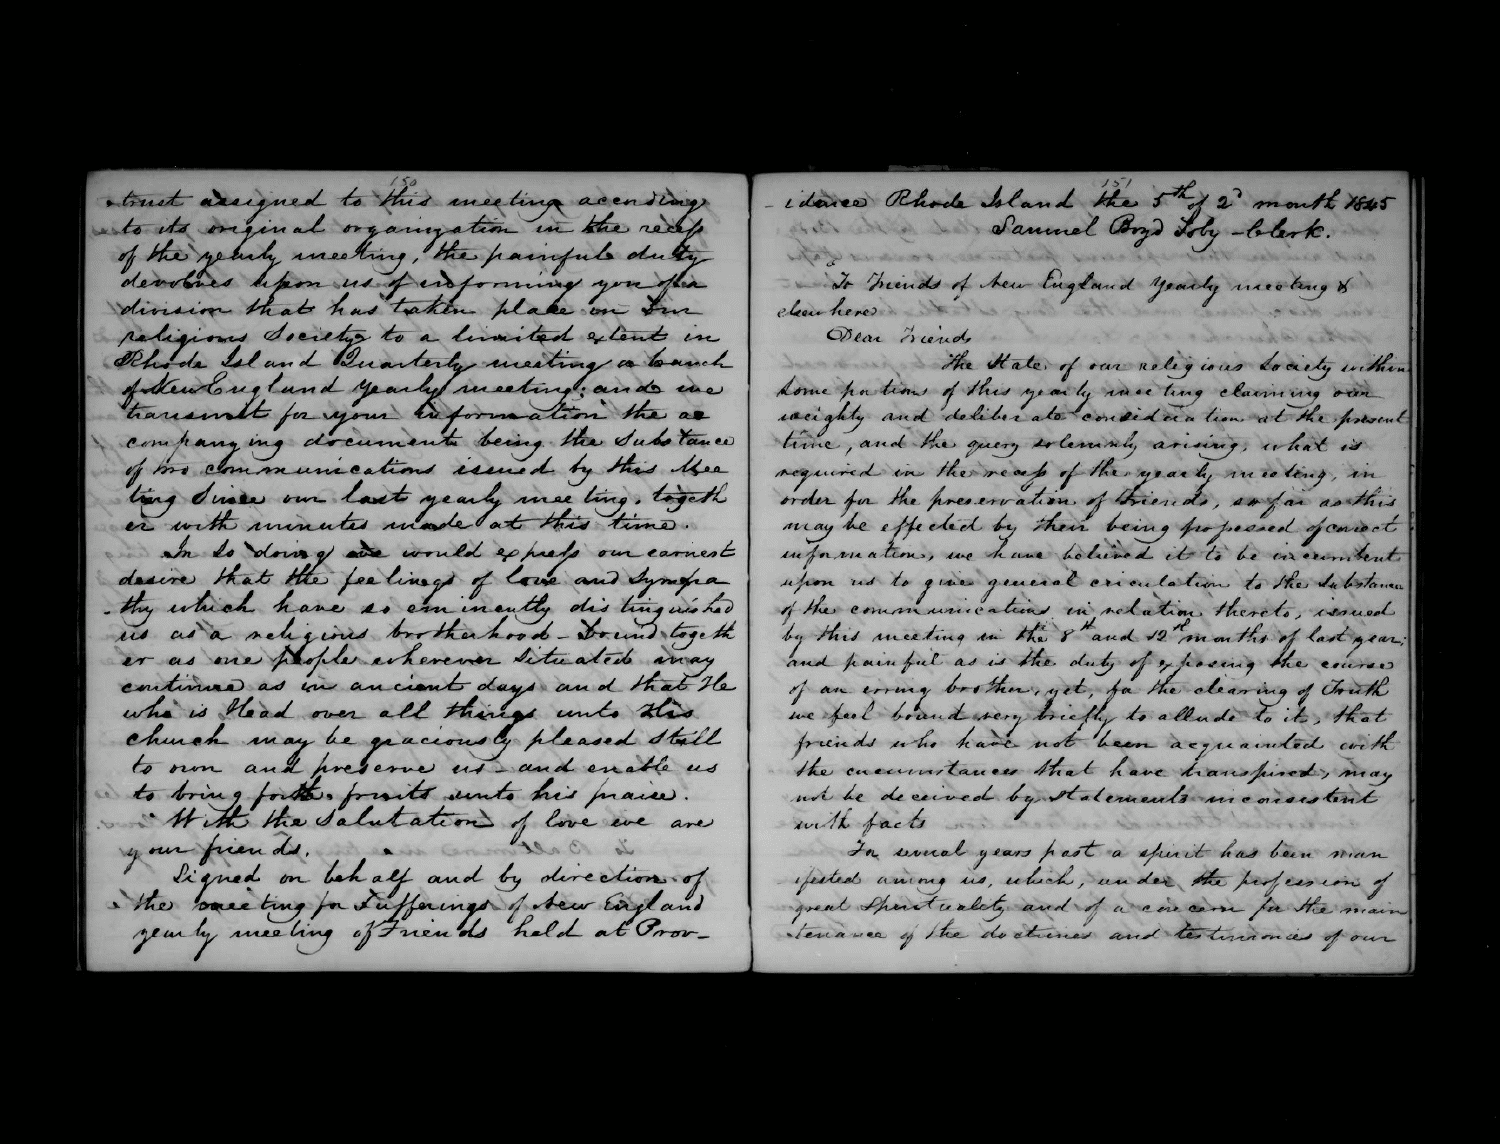 150
trust assigned to this meeting according
to its original organization in the recess
of the yearly meeting, the painful duty
devolves upon us of informing you of a
division that has taken place in our
religious Society to a limited extent in
Rhode Island Quarterly meeting a branch
of New England Yearly meeting; and we
transmit for your information the ac
companying documents being the Substance
of two communications issued by this Mee
ting Since our last yearly meeting, togeth
er with minutes made at this time.
In So doing we would express our earnest
desire that the feelings of love and Sympa
-thy which have so eminently distinguished
us as a religious brotherhood - bound togeth
er as one people wherever Situated may
continue as in ancient days and that He
who is Head over all things unto His
church may be graciously pleased Still
to own and preserve us - and enable us
to bring forth fruits unto his praise.
With the Salutation of love we are
your friends.
Signed on behalf and by direction of
the meeting for Sufferings of New England
yearly meeting of Friends held at Prov-
151
-idence Rhode Island the 5th of 2d month 1845
Samuel Boyd Toby - Clerk.
To Friends of New England Yearly meeting &
elsewhere
Dear Friends
The State of our religious Society within
some portions of this yearly meeting claiming our
weighty and deliberate consideration at the present
time, and the query solemnly arising, what is
required in the recess of the yearly meeting, in
order for the preservation of Friends, so far as this
may be effected by their being possessed of correct
information, we have believed it to be incumbent
upon us to give general circulation to the Substance
of the communications in relation thereto, issued
by this meeting in the 8th and 12th months of last year;
and painful as is the duty of exposing the course
of an erring brother, yet, for the clearing of Truth
we feel bound very briefly to allude to it, that
friends who have not been acquainted with
the circumstances that have transpired, may
not be deceived by statements inconsistent
with facts
For several years past a spirit has been man
ifested among us, which, under the profession of
great Spirituality and of a concern for the main
-tenance of the doctrines and testimonies of our